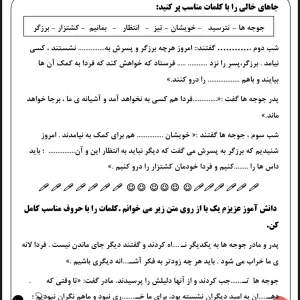 جاهای خالی را با کلمات مناسب پر کنید:
جوجه ها – نترسید – خویشان – تیز – انتظار – بمانیم – کشتزار – برزگر
شب دوم ............ گفتند:: امروز هرچه برزگر و پسرش به............... نشستند ، کسی
نیامد . برزگر،پسر را نزد ............ فرستاد که خواهش کند که فردا به کمک آن ها
بیایند و باهم ................ را درو کنند.»
پدر جوجه ها گفت :«............فردا هم کسی به نخواهد آمد و آشیانه ی ما ، برجا خواهد
ماند.»
شب سوم ، جوجه ها گفتند :« خویشان ........... هم برای کمک به نیامدند . امروز
شنیدیم که برزگر به پسرش می گفت که دیگر نباید به انتظار این و آن............. ؛ باید
داس ها را ........کنیم و فردا خودمان کشتزار را درو کنیم .»
دانش آموز عزیزم یک با از روی متن زیر می خوانم .کلمات را با حروف مناسب کامل
کن.
پدر و مادر جوجه ها به یکدیگر نـ....اه کردند و گفتند دیگر جای ماندن نیست . فردا لانه
ی ما خراب می شود . باید هر چه زودتر به فکر آشـ....انه دیگری باشیم .»
جوجه ها تـ....جب کردند و از آنها دلیلش را پرسیدند. مادر گفت: «تا وقتی که .